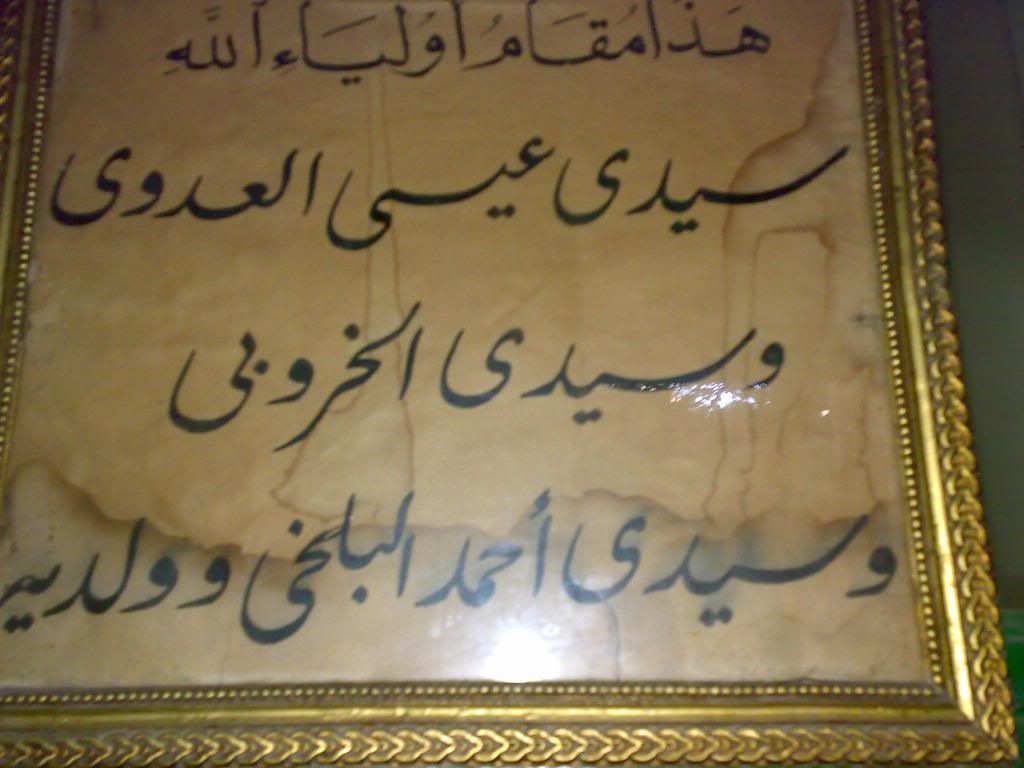 هَذَا مُقَامُ أَوْلِيَاءِ اللَّهِ
سيدى عيسى العدوى
وسيدى الخروبى
وسيدى أحمد البلخى وولديه